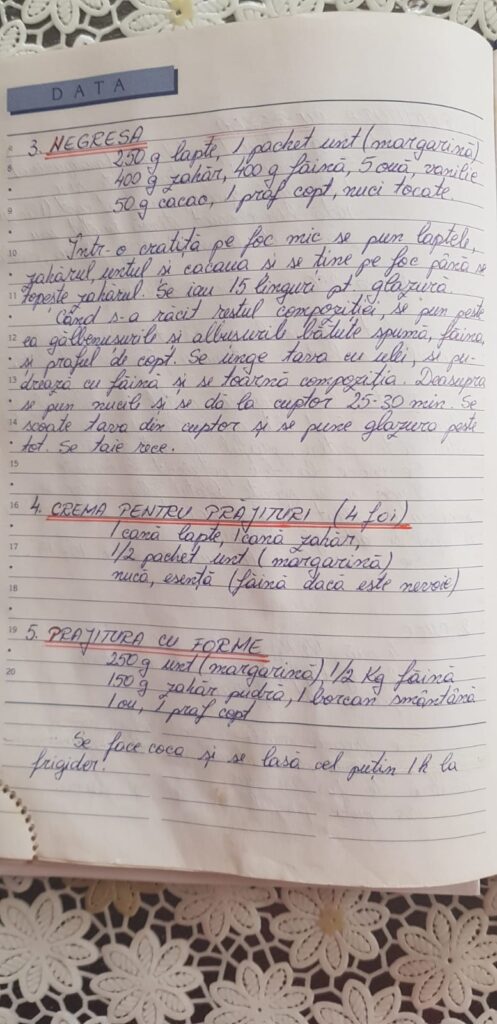 DATA
3. NEGRESA
250 g lapte, 1 pachet unt (margarină)
8
400 g zahăr, 400 g făină, 5 ouă, vanilie
50 g cacao, 1 praf copt, nuci tocate.
9
10 Într-o cratiță pe foc mic se pun laptele,
zahărul, untul si cacaua si se ține pe foc până se
11 topește zahărul. Se iau 15 linguri pt. glazură
Când s-a răcit restul compoziției, se pun peste
12 ea gălbenusurile si albusurile bătute spumă, făina,
si praful de copt. Se unge tava cu ulei, si pu-
13 drează cu făină și se toarnă compoziția. Deasupra
se pun nucile si se dă la cuptor 25-30 min. Se
14 scoate tava din cuptor și se pune glazura peste
tot. Se taie rece.
15
16 4. CREMA PENTRU PRĂJITURI (4 foi)
1 cană lapte, 1 cană zahăr,
17
1/2 pachet unt (margarină)
nucă, esență (făină dacă este nevoie)
18
19 5. PRAJITURA CU FORME
250 g unt (margarină) 1/2 Kg făină
20
150 g zahăr pudră, 1 borcan smântână
1 ou, 1 praf copt
Se face coca și se lasă cel puțin 1h la
frigider.